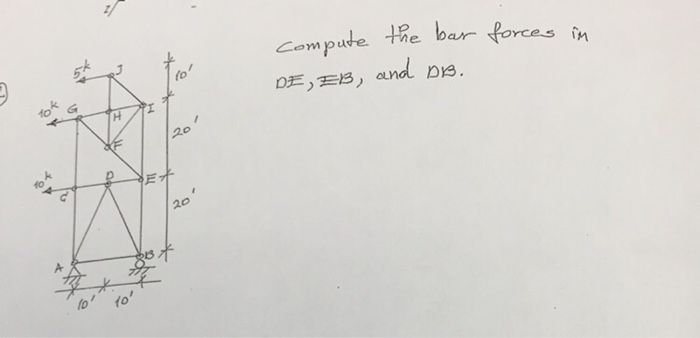 Compute the bar forces in
DE, EB, and DB.
5k
J
10'
10k
G
H
I
20'
F
10k
C
D
E
20'
A
B
10'
10'